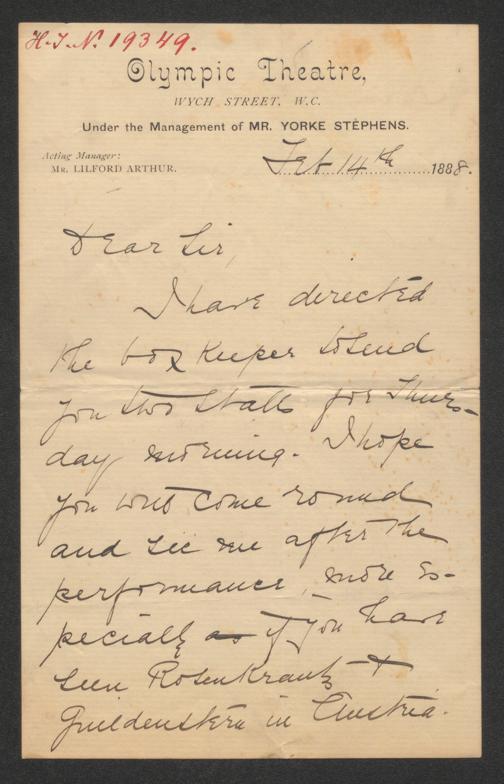 H.T.N. 19349.
Olympic Theatre,
WYCH STREET, W.C.
Under the Management of MR. YORKE STEPHENS.
Acting Manager:
MR. LILFORD ARTHUR.
Feb 14th 1888.
Dear Sir,
I have directed
the box keeper to send
you two stalls for Thurs-
day morning. I hope
you will come round
and see me after the
performance, more es-
pecially as if you have
seen Rosenkrantz &
Guildenstern in Austria.